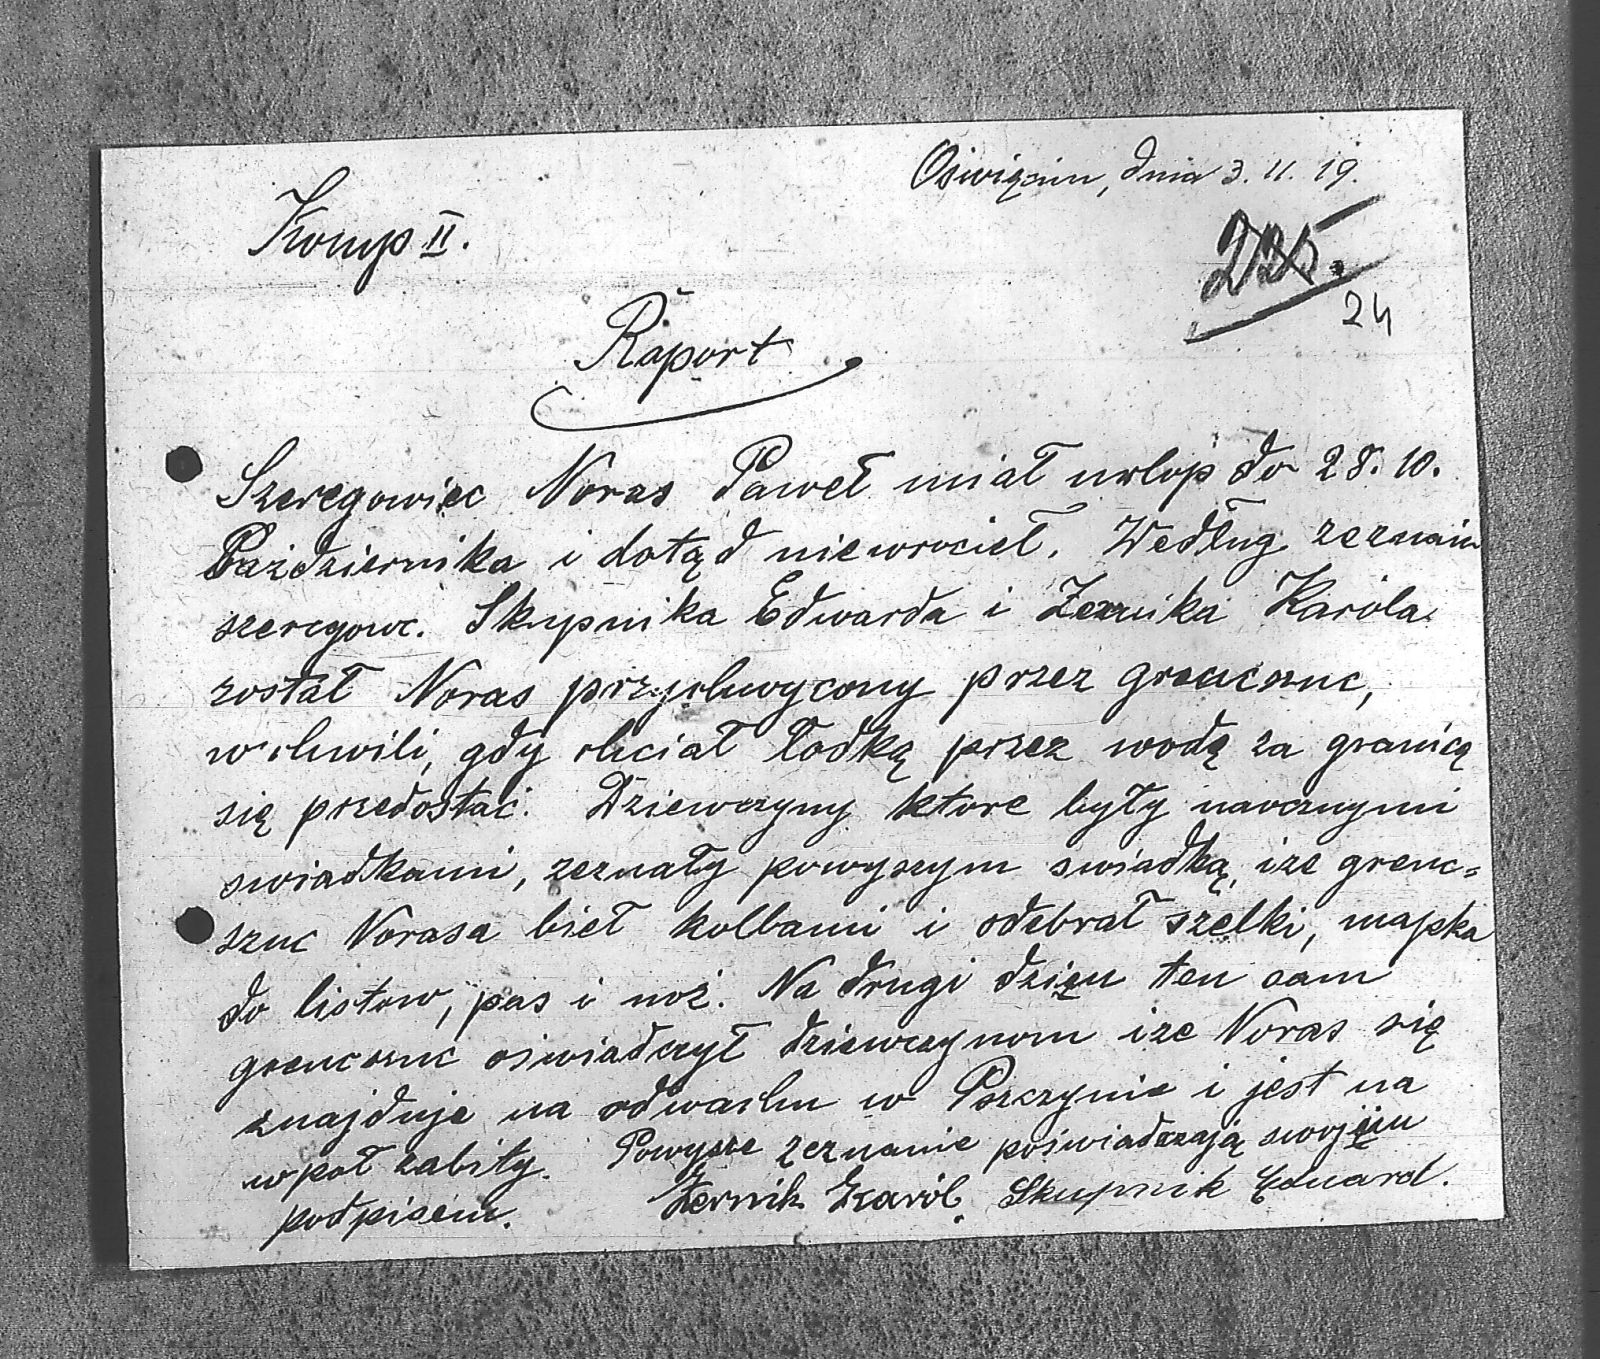 Oświęcim, dnia 3. 11. 19.
Komp II.
24
Raport
Szeregowiec Noras Paweł miał urlop do 28. 10.
Pażdziernika i dotąd niewrocieł. Wedľug zeznain
szeregowc. Skupnika Edwarda i Żernika Karóla
zostáł Noras przychwycony przez grencszuc,
w chwili, gdy chciał łodką przez wodą za granicą
się przedostać. Dziewczyny ktore były naocznymi
swiadkami, zeznały powyszym swiadką, iże grenc=
szuc Norasa bieł kolbami i odebrał szelki, mapka
do listow, pas i noż. Na drugi dzięn ten sam
grencszuc oświadczył dziewczynom iże Noras się
znajduje na odwachu w Pszczynie i jest na
wpoł zabity. Powysze zeznanie poświadczają swojęim
podpisem. Żernik Karól. Skupnik Eduard.